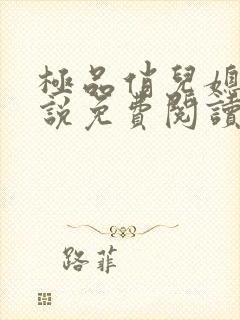 極品俏兒媳
說免費閱讀
路菲